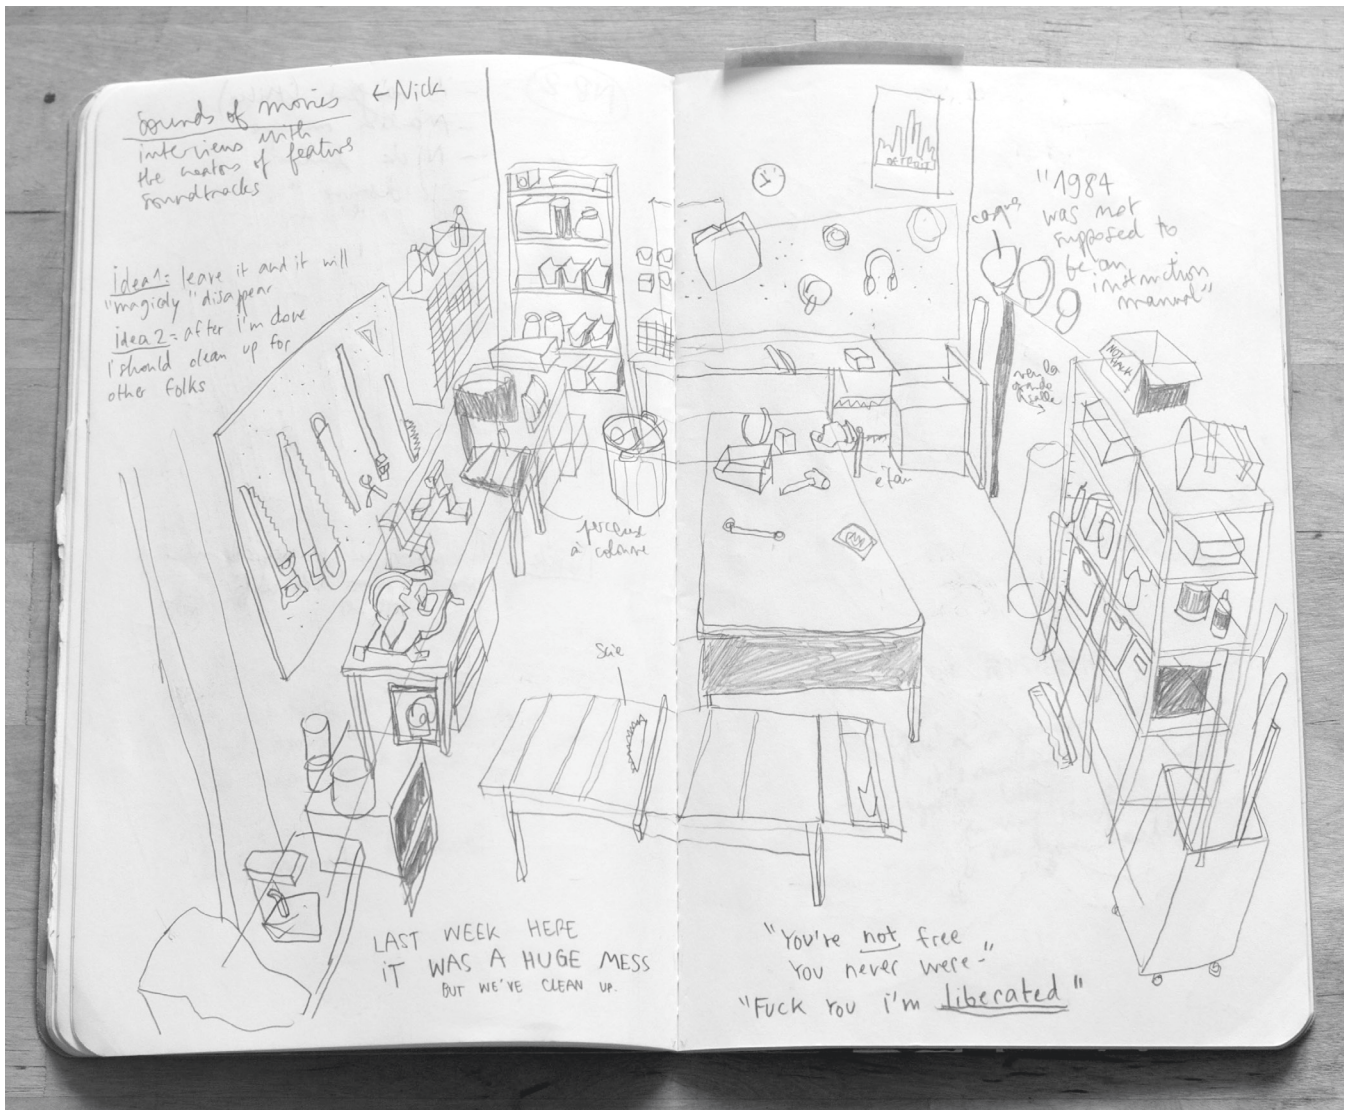 Sounds of movies
← Nick
interviews with
the creators of feature
soundtracks
idea 1: leave it and it will
"magicly" disappear
idea 2 = after I'm done
I should clean up for
other folks
DETROIT
casques
"1984
was not
supposed to
be an
instruction
manual"
NOT
HACK
vers la
grande
salle
étau
perceuse
à colonne
Scie
LAST WEEK HERE
iT WAS A HUGE MESS
BUT WE'VE CLEAN UP.
"You're not free
You never were-"
"Fuck You i'm liberated"